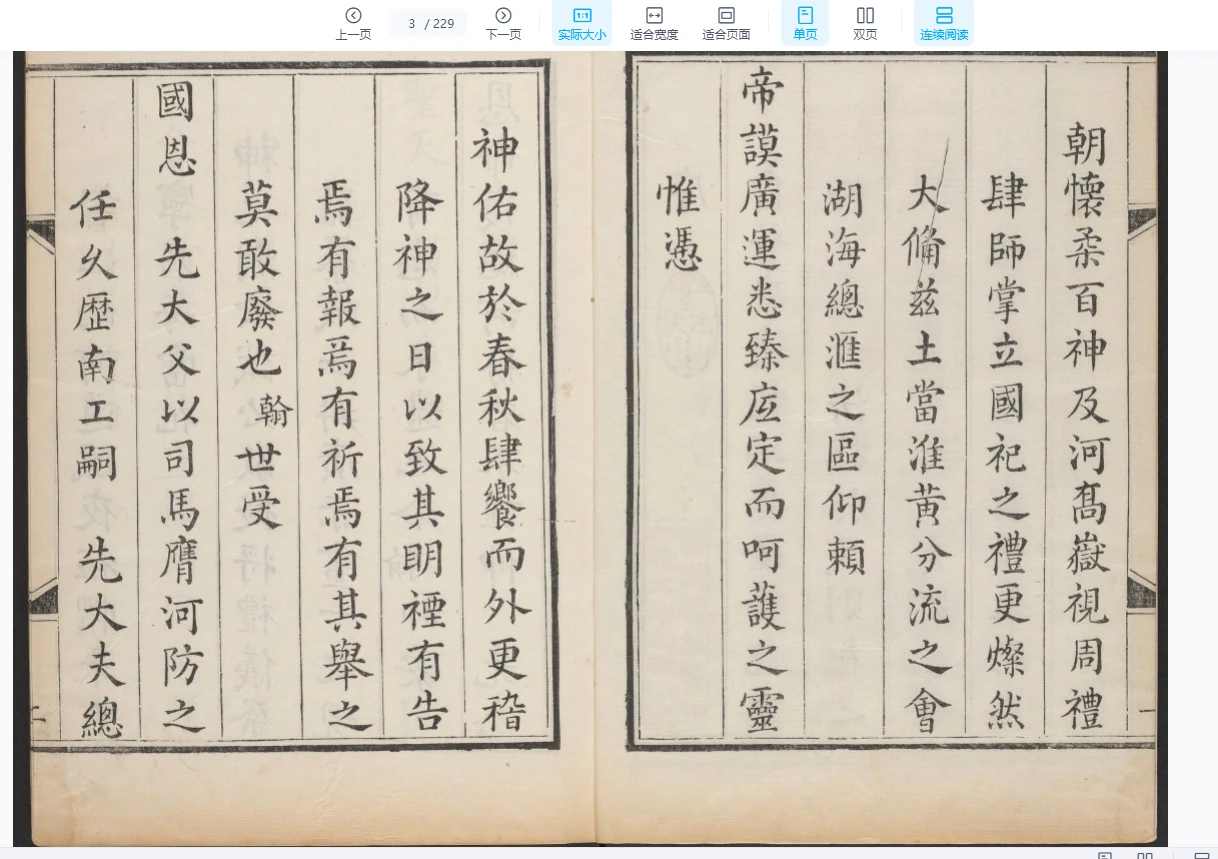 上一页
3 / 229
下一页
1:1
实际大小
适合宽度
适合页面
单页
双页
连续阅读
朝懷柔百神及河髙嶽視周禮
肆師掌立國祀之禮更燦然
大備兹土當淮黄分流之會
湖海總滙之區仰頼
帝謨廣運悉臻底定而呵護之靈
惟憑
神佑故於春秋肆饗而外更稽
降神之日以致其眀禋有告
焉有報焉有祈焉有其舉之
莫敢廢也翰世受
國恩先大父以司馬膺河防之
任久歴南工嗣先大夫總